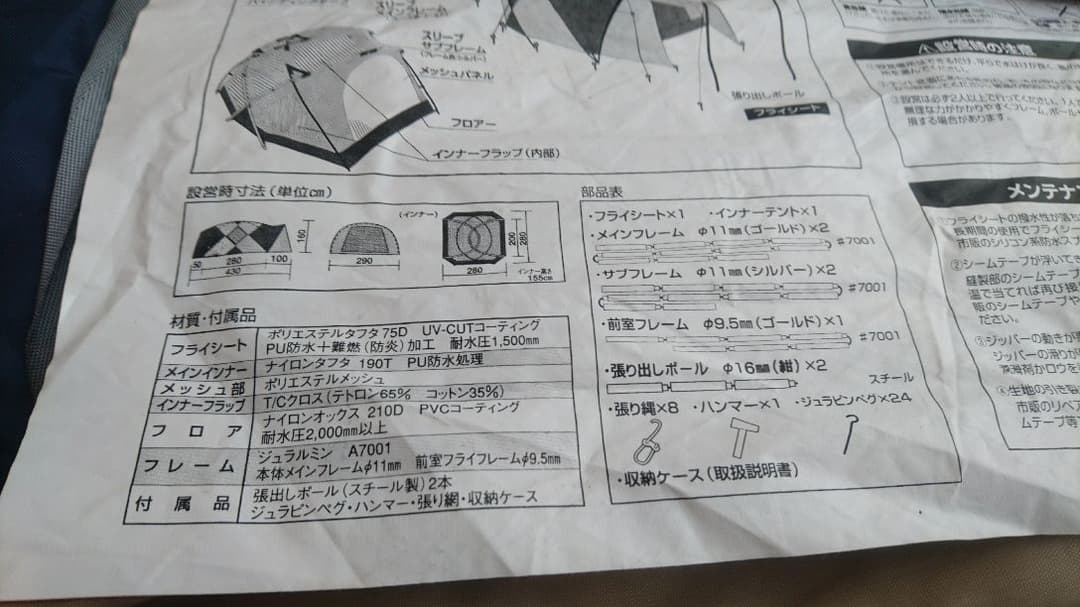 スリーブ
メインフレーム
スリーブ
サブフレーム
(フレーム色:シルバー)
メッシュパネル
フロアー
インナーフラップ(内部)
張り出しポール
フライシート
⚠設営時の注意
②設営は必ず2人以上で行ってください。1人で
無理な力がかかりやすくフレーム、ポール
損する場合があります。
設営時寸法(単位cm)
160
50 280 100
430
290
(インナー)
200
280
280
インナー高さ
155cm
材質・付属品
フライシート ポリエステルタフタ75D UV-CUTコーティング
PU防水+難燃(防炎)加工 耐水圧1,500mm
メインインナー ナイロンタフタ 190T PU防水処理
メッシュ部 ポリエステルメッシュ
インナーフラップ T/Cクロス(テトロン65% コットン35%)
フロア ナイロンオックス 210D PVCコーティング
耐水圧2,000mm以上
フレーム ジュラルミン A7001
本体メインフレームφ11mm 前室フライフレームφ9.5mm
付属品 張出しポール(スチール製)2本
ジュラピンペグ・ハンマー・張り網・収納ケース
部品表
・フライシート×1 ・インナーテント×1
・メインフレーム φ11mm(ゴールド)×2
#7001
・サブフレーム φ11mm(シルバー)×2
#7001
・前室フレーム φ9.5mm(ゴールド)×1
#7001
・張り出しポール φ16mm(紺)×2
スチール
・張り縄×8 ・ハンマー×1 ・ジュラピンペグ×24
・収納ケース(取扱説明書)
メンテナ
①フライシートの撥水性が落ち
長期間の使用でフライシー
市販のシリコン系防水ス
②シームテープが浮いてき
縫製部のシームテープ
温で当てれば再び接
販のシームテープや
ださい。
③ジッパーの動きが
ジッパーの滑りが
④生地の引き裂
市販のリペア
ムテープ等